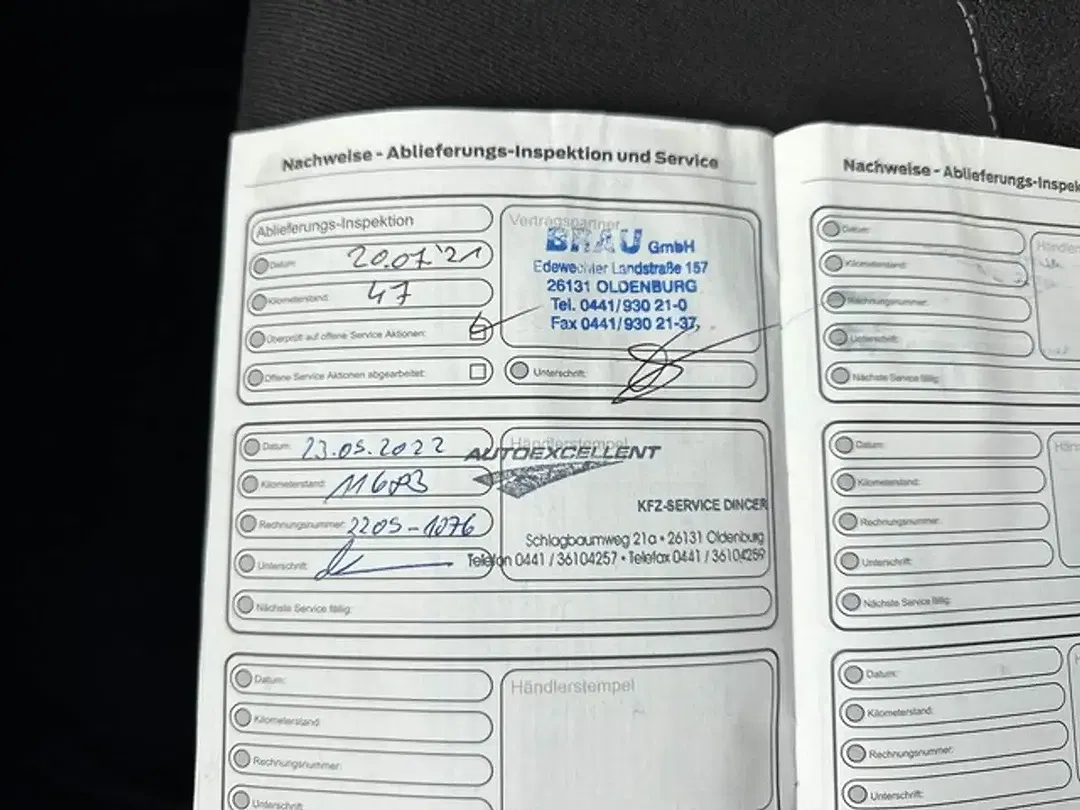 Nachweise - Ablieferungs-Inspektion und Service
Ablieferungs-Inspektion
Datum: 20.07.'21
Kilometerstand: 47
Überprüft auf offene Service Aktionen:
Offene Service Aktionen abgearbeitet:
Vertragspartner
BRAU GmbH
Edewechter Landstraße 157
26131 OLDENBURG
Tel. 0441/930 21-0
Fax 0441/930 21-37
Unterschrift:
Datum: 23.05.2022
Kilometerstand:
Rechnungsnummer: 2205-1076
Unterschrift:
Nächste Service fällig:
Händlerstempel
AUTOEXCELLENT
KFZ-SERVICE DINCER
Schlagbaumweg 21a • 26131 Oldenburg
Telefon 0441 / 36104257 • Telefax 0441 / 36104259
Datum:
Kilometerstand:
Rechnungsnummer:
Unterschrift:
Händlerstempel
Nachweise - Ablieferungs-Inspek
Datum:
Kilometerstand:
Rechnungsnummer:
Unterschrift:
Nächste Service fällig:
Händler
Datum:
Kilometerstand:
Rechnungsnummer:
Unterschrift:
Nächste Service fällig:
Hän
Datum:
Kilometerstand:
Rechnungsnummer:
Unterschrift: